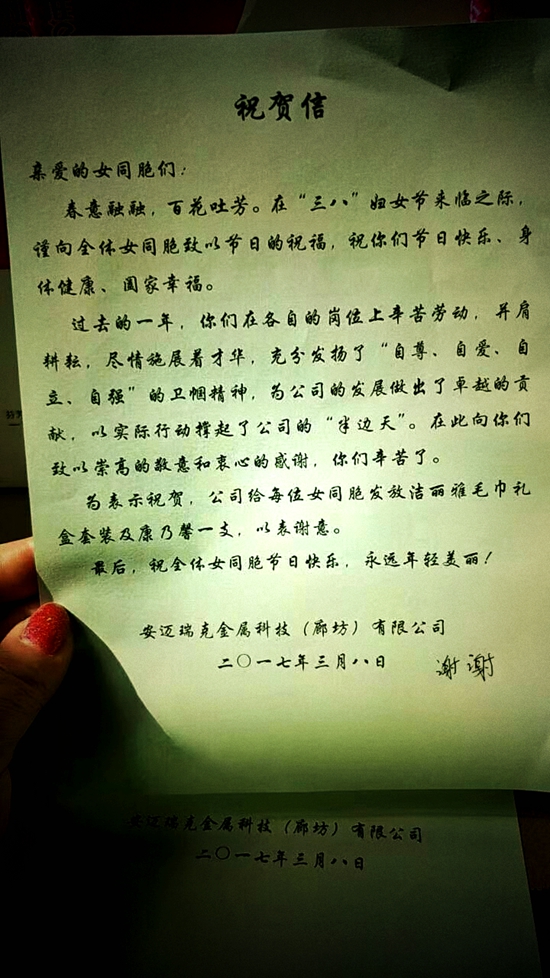 祝贺信
亲爱的女同胞们：
春意融融，百花吐芳。在“三八”妇女节来临之际，
谨向全体女同胞致以节日的祝福，祝你们节日快乐、身
体健康、阖家幸福。
过去的一年，你们在各自的岗位上辛苦劳动，并肩
耕耘，尽情施展着才华，充分发扬了“自尊、自爱、自
立、自强”的卫帼精神，为公司的发展做出了卓越的贡
献，以实际行动撑起了公司的“半边天”。在此向你们
致以崇高的敬意和衷心的感谢，你们辛苦了。
为表示祝贺，公司给每位女同胞发放洁丽雅毛巾礼
盒套装及康乃馨一支，以表谢意。
最后，祝全体女同胞节日快乐，永远年轻美丽！
安迈瑞克金属科技（廊坊）有限公司
二〇一七年三月八日 谢谢
安迈瑞克金属科技（廊坊）有限公司
二〇一七年三月八日